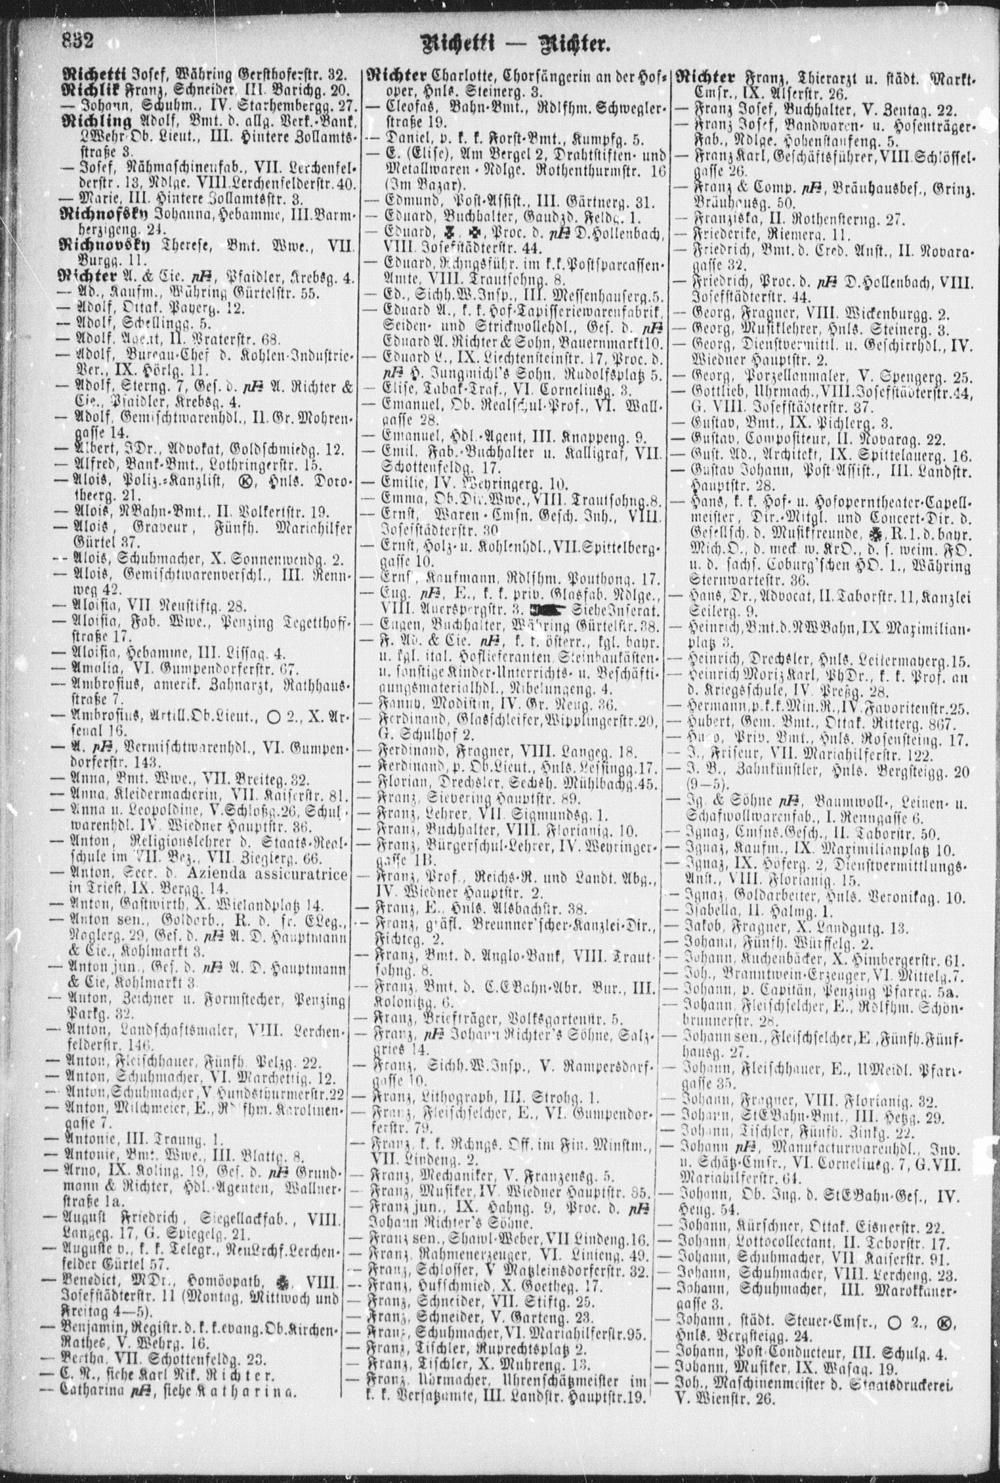 832
Richetti — Richter.
Richetti Josef, Währing Gersthoferstr. 32.
Richlik Franz, Schneider, III. Barichg. 20.
— Johann, Schuhm., IV. Starhembergg. 27.
Richling Adolf, Bmt. d. allg. Verk.-Bank,
LWehr Ob. Lieut., III. Hintere Zollamts-
straße 3.
— Josef, Nähmaschinenfab., VII. Lerchenfel-
derstr. 13, Ndlge. VIII. Lerchenfelderstr. 40.
— Marie, III. Hintere Zollamtsstr. 3.
Richnofsky Johanna, Hebamme, III. Barm-
herzigeng. 24.
Richnovsky Therese, Bmt. Wwe., VII.
Burgg. 11.
Richter A. & Cie. pH, Pfaidler, Krebsg. 4.
— Ad., Kaufm., Währing Gürtelstr. 55.
— Adolf, Ottak. Payerg. 12.
— Adolf, Schellingg. 5.
— Adolf, Agent, II. Praterstr. 68.
— Adolf, Bureau-Chef d. Kohlen-Industrie-
Ver., IX. Hörlg. 11.
— Adolf, Sterng. 7, Ges. d. pH A. Richter &
Cie., Pfaidler, Krebsg. 4.
— Adolf, Gemischtwarenhdl., II. Gr. Mohren-
gasse 14.
— Albert, JDr., Advokat, Goldschmiedg. 12.
— Alfred, Bank-Bmt., Lothringerstr. 15.
— Alois, Poliz.-Kanzlist, Ⓚ, Hnls. Doro-
theerg. 21.
— Alois, NBahn-Bmt., II. Volkertstr. 19.
— Alois, Graveur, Fünfh. Mariahilfer
Gürtel 37.
— Alois, Schuhmacher, X. Sonnenwendg. 2.
— Alois, Gemischtwarenverschl., III. Renn-
weg 42.
— Aloisia, VII. Neustiftg. 28.
— Aloisia, Fab. Wwe., Penzing Tegetthoff-
straße 17.
— Aloisia, Hebamme, III. Lissag. 4.
— Amalia, VI. Gumpendorferstr. 67.
— Ambrosius, amerik. Zahnarzt, Rathhaus-
straße 7.
— Ambrosius, Artill. Ob. Lieut., ○ 2., X. Ar-
senal 16.
— A. pH, Vermischtwarenhdl., VI. Gumpen-
dorferstr. 143.
— Anna, Bmt. Wwe., VII. Breiteg. 32.
— Anna, Kleidermacherin, VII. Kaiserstr. 81.
— Anna u. Leopoldine, V. Schloßg. 26, Schuh-
warenhdl. IV. Wiedner Hauptstr. 36.
— Anton, Religionslehrer d. Staats-Real-
schule im VII. Bez., VII. Zieglerg. 66.
— Anton, Secr. d. Azienda assicuratrice
in Triest, IX. Bergg. 14.
— Anton, Gastwirth, X. Wielandplatz 14.
— Anton sen., Goldarb., R. d. sc. ELeg.,
Naglerg. 29, Ges. d. pH A. D. Hauptmann
& Cie., Kohlmarkt 3.
— Anton jun., Ges. d. pH A. D. Hauptmann
& Cie, Kohlmarkt 3.
— Anton, Zeichner u. Formstecher, Penzing
Parkg. 32.
— Anton, Landschaftsmaler, VIII. Lerchen-
felderstr. 146.
— Anton, Fleischhauer, Fünfh. Pelzg. 22.
— Anton, Schuhmacher, VI. Marchettig. 12.
— Anton, Schuhmacher, V. Hundsthurmerstr. 22
— Anton, Milchmeier, E., Rdlfhm. Karolinen-
gasse 7.
— Antonie, III. Traung. 1.
— Antonie, Bmt. Wwe., III. Blattg. 8.
— Arno, IX. Koling. 19, Ges. d. pH Grund-
mann & Richter, Hdl.-Agenten, Wallner-
straße 1a.
— August Friedrich, Siegellackfab., VIII.
Langeg. 17, G. Spiegelg. 21.
— Auguste v., k. k. Telegr., NeuLrchf. Lerchen-
felder Gürtel 57.
— Benedict, MDr., Homöopath, VIII.
Josefstädterstr. 11 (Montag, Mittwoch und
Freitag 4—5).
— Benjamin, Registr. d. k. k. evang. Ob. Kirchen-
Rathes, V. Wehrg. 16.
— Bertha, VII. Schottenfeldg. 23.
— C. N., siehe Karl Nik. Richter.
— Catharina pH, siehe Katharina.
Richter Charlotte, Chorsängerin an der Hof-
oper, Hnls. Steinerg. 3.
— Cleofas, Bahn-Bmt., Rdlfhm. Schwegler-
straße 19.
— Daniel, p. k. k. Forst-Bmt., Kumpfg. 5.
— E. (Elise), Am Bergel 2, Drahtstiften- und
Metallwaren-Ndlge. Rothenthurmstr. 16
(Im Bazar).
— Edmund, Post-Assist., III. Gärtnerg. 31.
— Eduard, Buchhalter, Gaudzd. Feldg. 1.
— Eduard, Proc. d. pH D. Hollenbach,
VIII. Josefstädterstr. 44.
— Eduard, Rchngsführ. im k. k. Postsparcassen-
Amte, VIII. Trautsohng. 8.
— Ed., Sichh. W. Insp., III. Messenhauserg. 5.
— Eduard A., k. k. Hof-Tapisseriewarenfabrik,
Seiden- und Strickwollehdl., Ges. d. pH
Eduard A. Richter & Sohn, Bauernmarkt 10.
— Eduard L., IX. Liechtensteinstr. 17, Proc. d.
pH H. Jungmichl's Sohn, Rudolfsplatz 5.
— Elise, Tabak-Traf., VI. Corneliusg. 3.
— Emanuel, Ob. Realschul-Prof., VI. Wall-
gasse 28.
— Emanuel, Hdl.-Agent, III. Knappeng. 9.
— Emil, Fab.-Buchhalter u. Kalligraf, VII.
Schottenfeldg. 17.
— Emilie, IV. Weyringerg. 10.
— Emma, Ob. Dir. Wwe., VIII. Trautsohng. 8.
— Ernst, Waren-Cmsn. Gesch. Inh., VIII.
Josefstädterstr. 30
— Ernst, Holz- u. Kohlenhdl., VII. Spittelberg-
gasse 10.
— Ernst, Kaufmann, Rdlfhm. Pouthong. 17.
— Eug. pH, E., k. k. priv. Glasfab. Ndlge.,
VIII. Auerspergstr. 3. Siehe Inserat.
— Eugen, Buchhalter, Währing Gürtelstr. 38.
— F. Ad. & Cie. pH, k. k. österr., kgl. bayr.
u. kgl. ital. Hoflieferanten, Steinbaukästen-
u. sonstige Kinder-Unterrichts- u. Beschäfti-
gungsmaterialhdl., Nibelungeng. 4.
— Fanny, Modistin, IV. Gr. Neug. 36.
— Ferdinand, Glasschleifer, Wipplingerstr. 20,
G. Schulhof 2.
— Ferdinand, Fragner, VIII. Langeg. 18.
— Ferdinand, p. Ob. Lieut., Hnls. Lessingg. 17.
— Florian, Drechsler, Sechsh. Mühlbachg. 45.
— Franz, Sievering Hauptstr. 89.
— Franz, Lehrer, VII. Sigmundsg. 1.
— Franz, Buchhalter, VIII. Florianig. 10.
— Franz, Bürgerschul-Lehrer, IV. Weyringer-
gasse 1B.
— Franz, Prof., Reichs-R. und Landt. Abg.,
IV. Wiedner Hauptstr. 2.
— Franz, E., Hnls. Alsbachstr. 38.
— Franz, gräfl. Breunner'scher-Kanzlei-Dir.,
Fichteg. 2.
— Franz, Bmt. d. Anglo-Bank, VIII. Traut-
sohng. 8.
— Franz, Bmt. d. C. E Bahn-Abr. Bur., III.
Kolonitzg. 6.
— Franz, Briefträger, Volksgartenstr. 5.
— Franz, pH Johann Richter's Söhne, Salz-
gries 14.
— Franz, Sichh. W. Insp., V. Rampersdorf-
gasse 10.
— Franz, Lithograph, III. Strohg. 1.
— Franz, Fleischselcher, E., VI. Gumpendor-
ferstr. 79.
— Franz, k. k. Rchngs. Off. im Fin. Minstm.,
VII. Lindeng. 2.
— Franz, Mechaniker, V. Franzensg. 5.
— Franz, Musiker, IV. Wiedner Hauptstr. 85.
— Franz jun., IX. Hahng. 9, Proc. d. pH
Johann Richter's Söhne.
— Franz sen., Shawl-Weber, VII Lindeng. 16.
— Franz, Rahmenerzeuger, VI. Linieng. 49.
— Franz, Schlosser, V. Matzleinsdorferstr. 32.
— Franz, Hufschmied, X. Goetheg. 17.
— Franz, Schneider, VII. Stiftg. 25.
— Franz, Schneider, V. Garteng. 23.
— Franz, Schuhmacher, VI. Mariahilferstr. 95.
— Franz, Tischler, Ruprechtsplatz 2.
— Franz, Tischler, X. Muhreng. 13.
— Franz, Uhrmacher, Uhrenschätzmeister im
k. k. Versatzamte, III. Landstr. Hauptstr. 19.
Richter Franz, Thierarzt u. städt. Markt-
Cmsr., IX. Alserstr. 26.
— Franz Josef, Buchhalter, V. Zentag. 22.
— Franz Josef, Bandwaren- u. Hosenträger-
Fab., Ndlge. Hohenstaufeng. 5.
— Franz Karl, Geschäftsführer, VIII. Schlössel-
gasse 26.
— Franz & Comp. pH, Bräuhausbes., Grinz.
Bräuhausg. 50.
— Franziska, II. Rothensterng. 27.
— Friederike, Riemerg. 11.
— Friedrich, Bmt. d. Cred. Anst., II. Novara-
gasse 32.
— Friedrich, Proc. d. pH D. Hollenbach, VIII.
Josefstädterstr. 44.
— Georg, Fragner, VIII. Wickenburgg. 2.
— Georg, Musiklehrer, Hnls. Steinerg. 3.
— Georg, Dienstvermittl. u. Geschirrhdl., IV.
Wiedner Hauptstr. 2.
— Georg, Porzellanmaler, V. Spengerg. 25.
— Gottlieb, Uhrmach., VIII. Josefstädterstr. 44,
G. VIII. Josefstädterstr. 37.
— Gustav, Bmt., IX. Pichlerg. 3.
— Gustav, Compositeur, II. Novarag. 22.
— Gust. Ad., Architekt, IX. Spittelauerg. 16.
— Gustav Johann, Post-Assist., III. Landstr.
Hauptstr. 28.
— Hans, k. k. Hof- u. Hofoperntheater-Capell-
meister, Dir.-Mitgl. und Concert-Dir. d.
Gesellsch. d. Musikfreunde, R. 1. d. bayr.
Mich. O., d. meck. w. KrO., d. s. weim. FO.
u. d. sachs. Coburg'schen HO. 1., Währing
Sternwartestr. 36.
— Hans, Dr., Advocat, II. Taborstr. 11, Kanzlei
Seilerg. 9.
— Heinrich, Bmt. d. NWBahn, IX. Maximilian-
platz 3.
— Heinrich, Drechsler, Hnls. Leitermayerg. 15.
— Heinrich Moriz Karl, PhDr., k. k. Prof. an
d. Kriegsschule, IV. Preßg. 28.
— Hermann, p. k. k. Min. R., IV. Favoritenstr. 25.
— Hubert, Gem. Bmt., Ottak. Ritterg. 867.
— Hugo, Priv. Bmt., Hnls. Rosensteing. 17.
— J., Friseur, VII. Mariahilferstr. 122.
— J. B., Zahnkünstler, Hnls. Bergsteigg. 20
(9—5).
— Ig. & Söhne pH, Baumwoll-, Leinen- u.
Schafwollwarenfab., I. Renngasse 6.
— Ignaz, Cmsns. Gesch., II. Taborstr. 50.
— Ignaz, Kaufm., IX. Maximilianplatz 10.
— Ignaz, IX. Höferg. 2, Dienstvermittlungs-
Anst., VIII. Florianig. 15.
— Ignaz, Goldarbeiter, Hnls. Veronikag. 10.
— Isabella, II. Halmg. 1.
— Jakob, Fragner, X. Landgutg. 13.
— Johann, Fünfh. Würffelg. 2.
— Johann, Kuchenbäcker, X. Himbergerstr. 61.
— Joh., Branntwein-Erzeuger, VI. Mittelg. 7.
— Johann, p. Capitän, Penzing Pfarrg. 5a.
— Johann, Fleischselcher, E., Rdlfhm. Schön-
brunnerstr. 28.
— Johann sen., Fleischselcher, E., Fünfh. Fünf-
hausg. 27.
— Johann, Fleischhauer, E., UMeidl. Pfarr-
gasse 35.
— Johann, Fragner, VIII. Florianig. 32.
— Johann, StEBahn-Bmt., III. Hetzg. 29.
— Johann, Tischler, Fünfh. Zinkg. 22.
— Johann pH, Manufacturwarenhdl., Inv.
u. Schätz-Cmsr., VI. Corneliusg. 7, G. VII.
Mariahilferstr. 64.
— Johann, Ob. Ing. d. StEBahn-Ges., IV.
Heug. 54.
— Johann, Kürschner, Ottak. Eisnerstr. 22.
— Johann, Lottocollectant, II. Taborstr. 17.
— Johann, Schuhmacher, VII. Kaiserstr. 91.
— Johann, Schuhmacher, VIII. Lercheng. 23.
— Johann, Schuhmacher, III. Marokkaner-
gasse 3.
— Johann, städt. Steuer-Cmsr., ○ 2., Ⓚ,
Hnls. Bergsteigg. 24.
— Johann, Post-Conducteur, III. Schulg. 4.
— Johann, Musiker, IX. Wasag. 19.
— Joh., Maschinenmeister d. Staatsdruckerei,
V. Wienstr. 26.